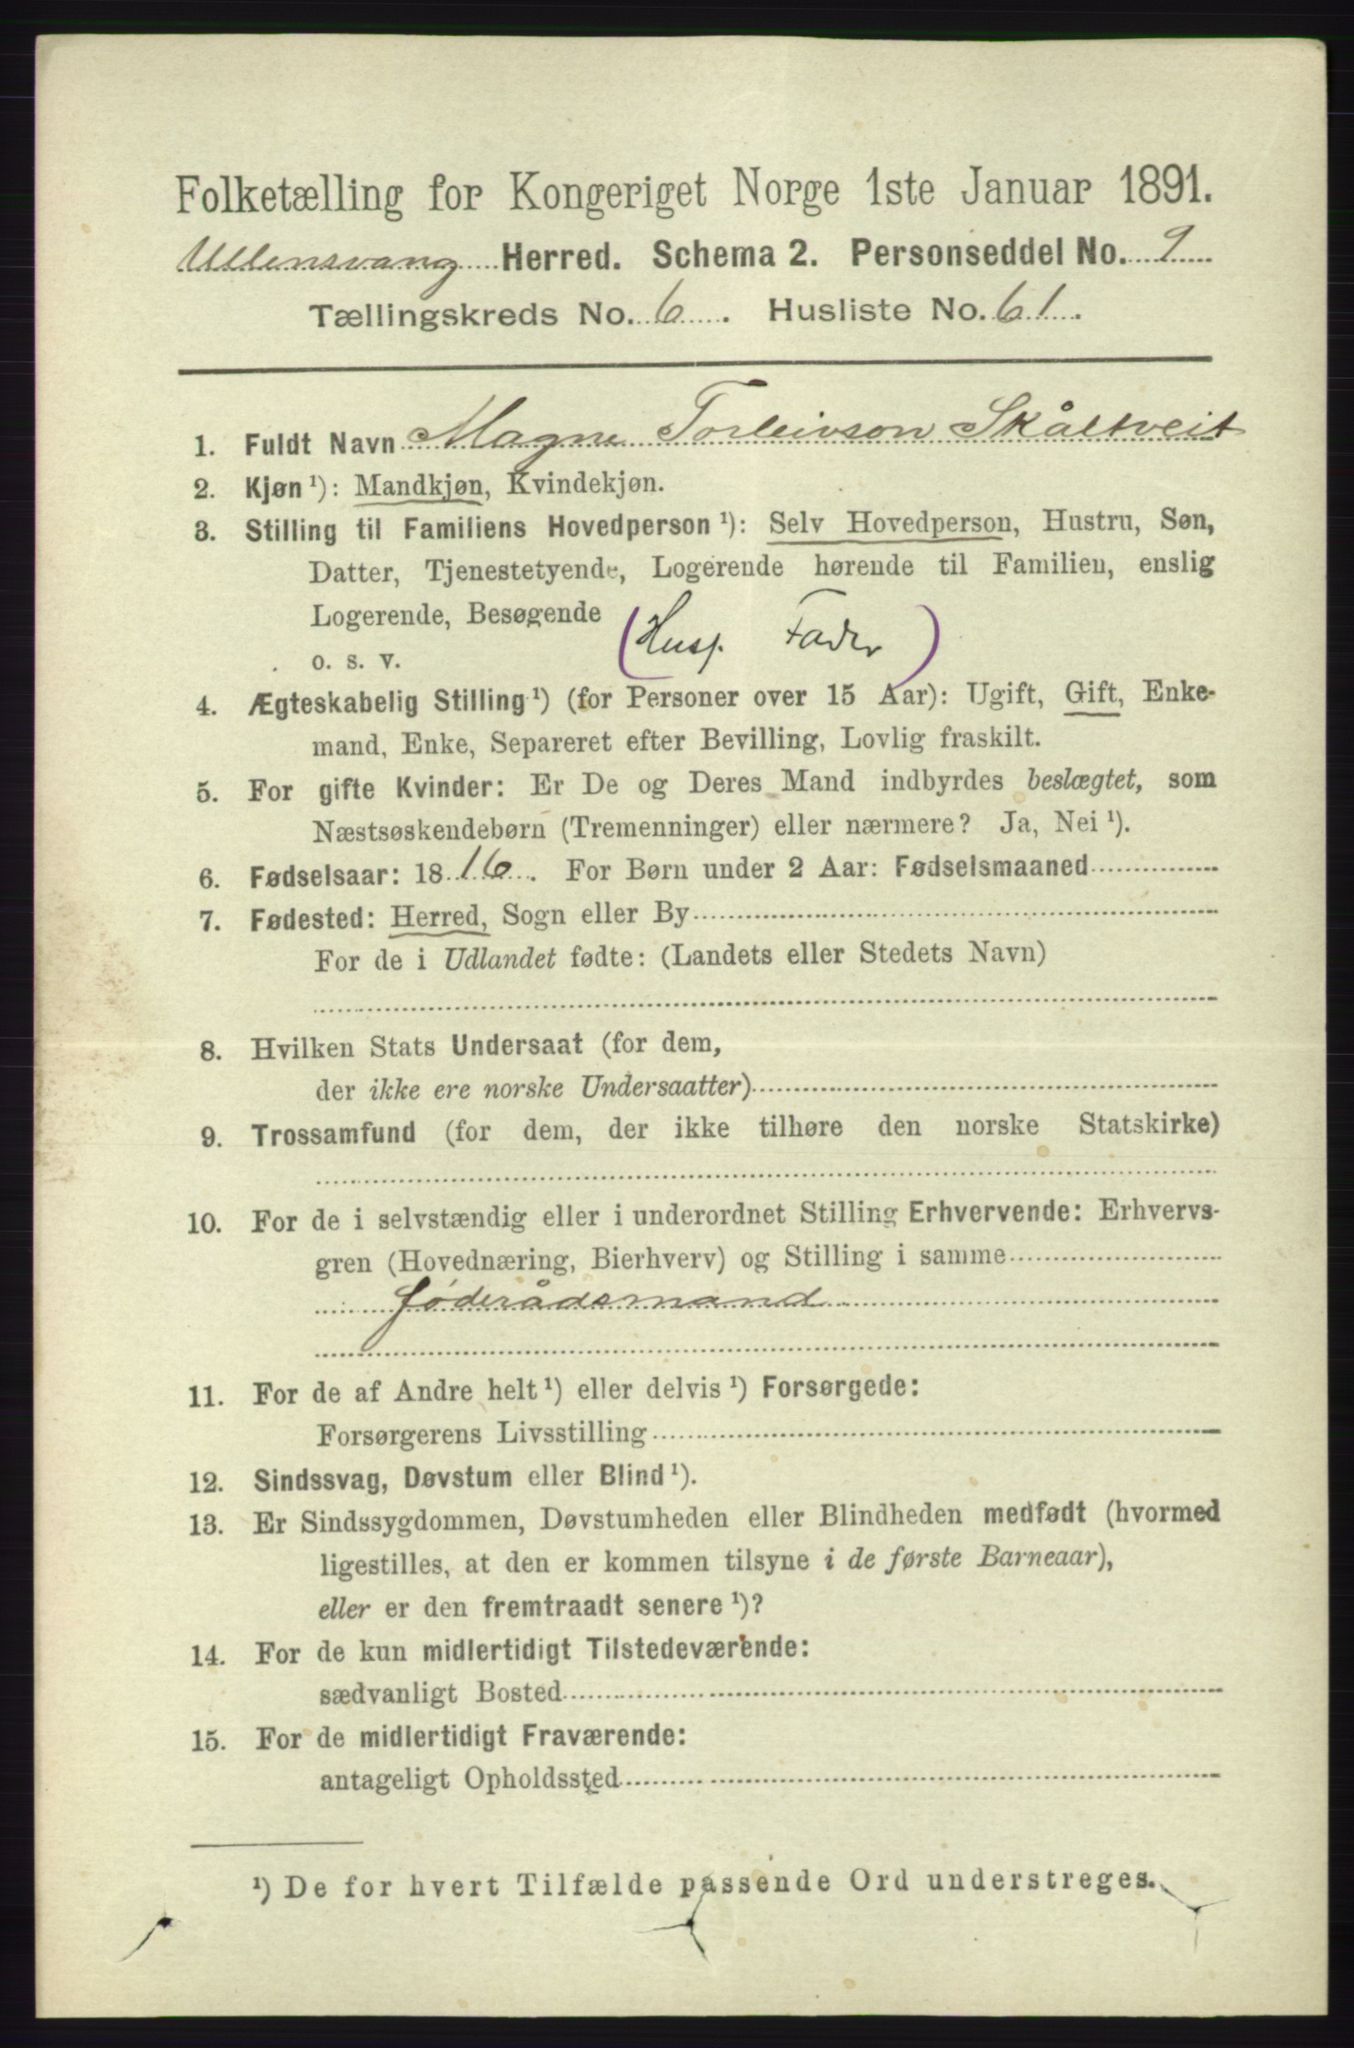 Folketælling for Kongeriget Norge 1ste Januar 1891.
Ullensvang Herred. Schema 2. Personseddel No. 9
Tællingskreds No. 6. Husliste No. 61.
1. Fuldt Navn Magne Torleivson Skåltveit
2. Kjøn ¹): Mandkjøn, Kvindekjøn.
3. Stilling til Familiens Hovedperson ¹): Selv Hovedperson, Hustru, Søn,
Datter, Tjenestetyende, Logerende hørende til Familien, enslig
Logerende, Besøgende
o. s. v. (Husf. Fader)
4. Ægteskabelig Stilling ¹) (for Personer over 15 Aar): Ugift, Gift, Enke-
mand, Enke, Separeret efter Bevilling, Lovlig fraskilt.
5. For gifte Kvinder: Er De og Deres Mand indbyrdes beslægtet, som
Næstsøskendebørn (Tremenninger) eller nærmere? Ja, Nei ¹).
6. Fødselsaar: 1816. For Børn under 2 Aar: Fødselsmaaned
7. Fødested: Herred, Sogn eller By
For de i Udlandet fødte: (Landets eller Stedets Navn)
8. Hvilken Stats Undersaat (for dem,
der ikke ere norske Undersaatter)
9. Trossamfund (for dem, der ikke tilhøre den norske Statskirke)
10. For de i selvstændig eller i underordnet Stilling Erhvervende: Erhvervs-
gren (Hovednæring, Bierhverv) og Stilling i samme
føderådsmand
11. For de af Andre helt ¹) eller delvis ¹) Forsørgede:
Forsørgerens Livsstilling
12. Sindssvag, Døvstum eller Blind ¹).
13. Er Sindssygdommen, Døvstumheden eller Blindheden medfødt (hvormed
ligestilles, at den er kommen tilsyne i de første Barneaar),
eller er den fremtraadt senere ¹)?
14. For de kun midlertidigt Tilstedeværende:
sædvanligt Bosted
15. For de midlertidigt Fraværende:
antageligt Opholdssted
¹) De for hvert Tilfælde passende Ord understreges.